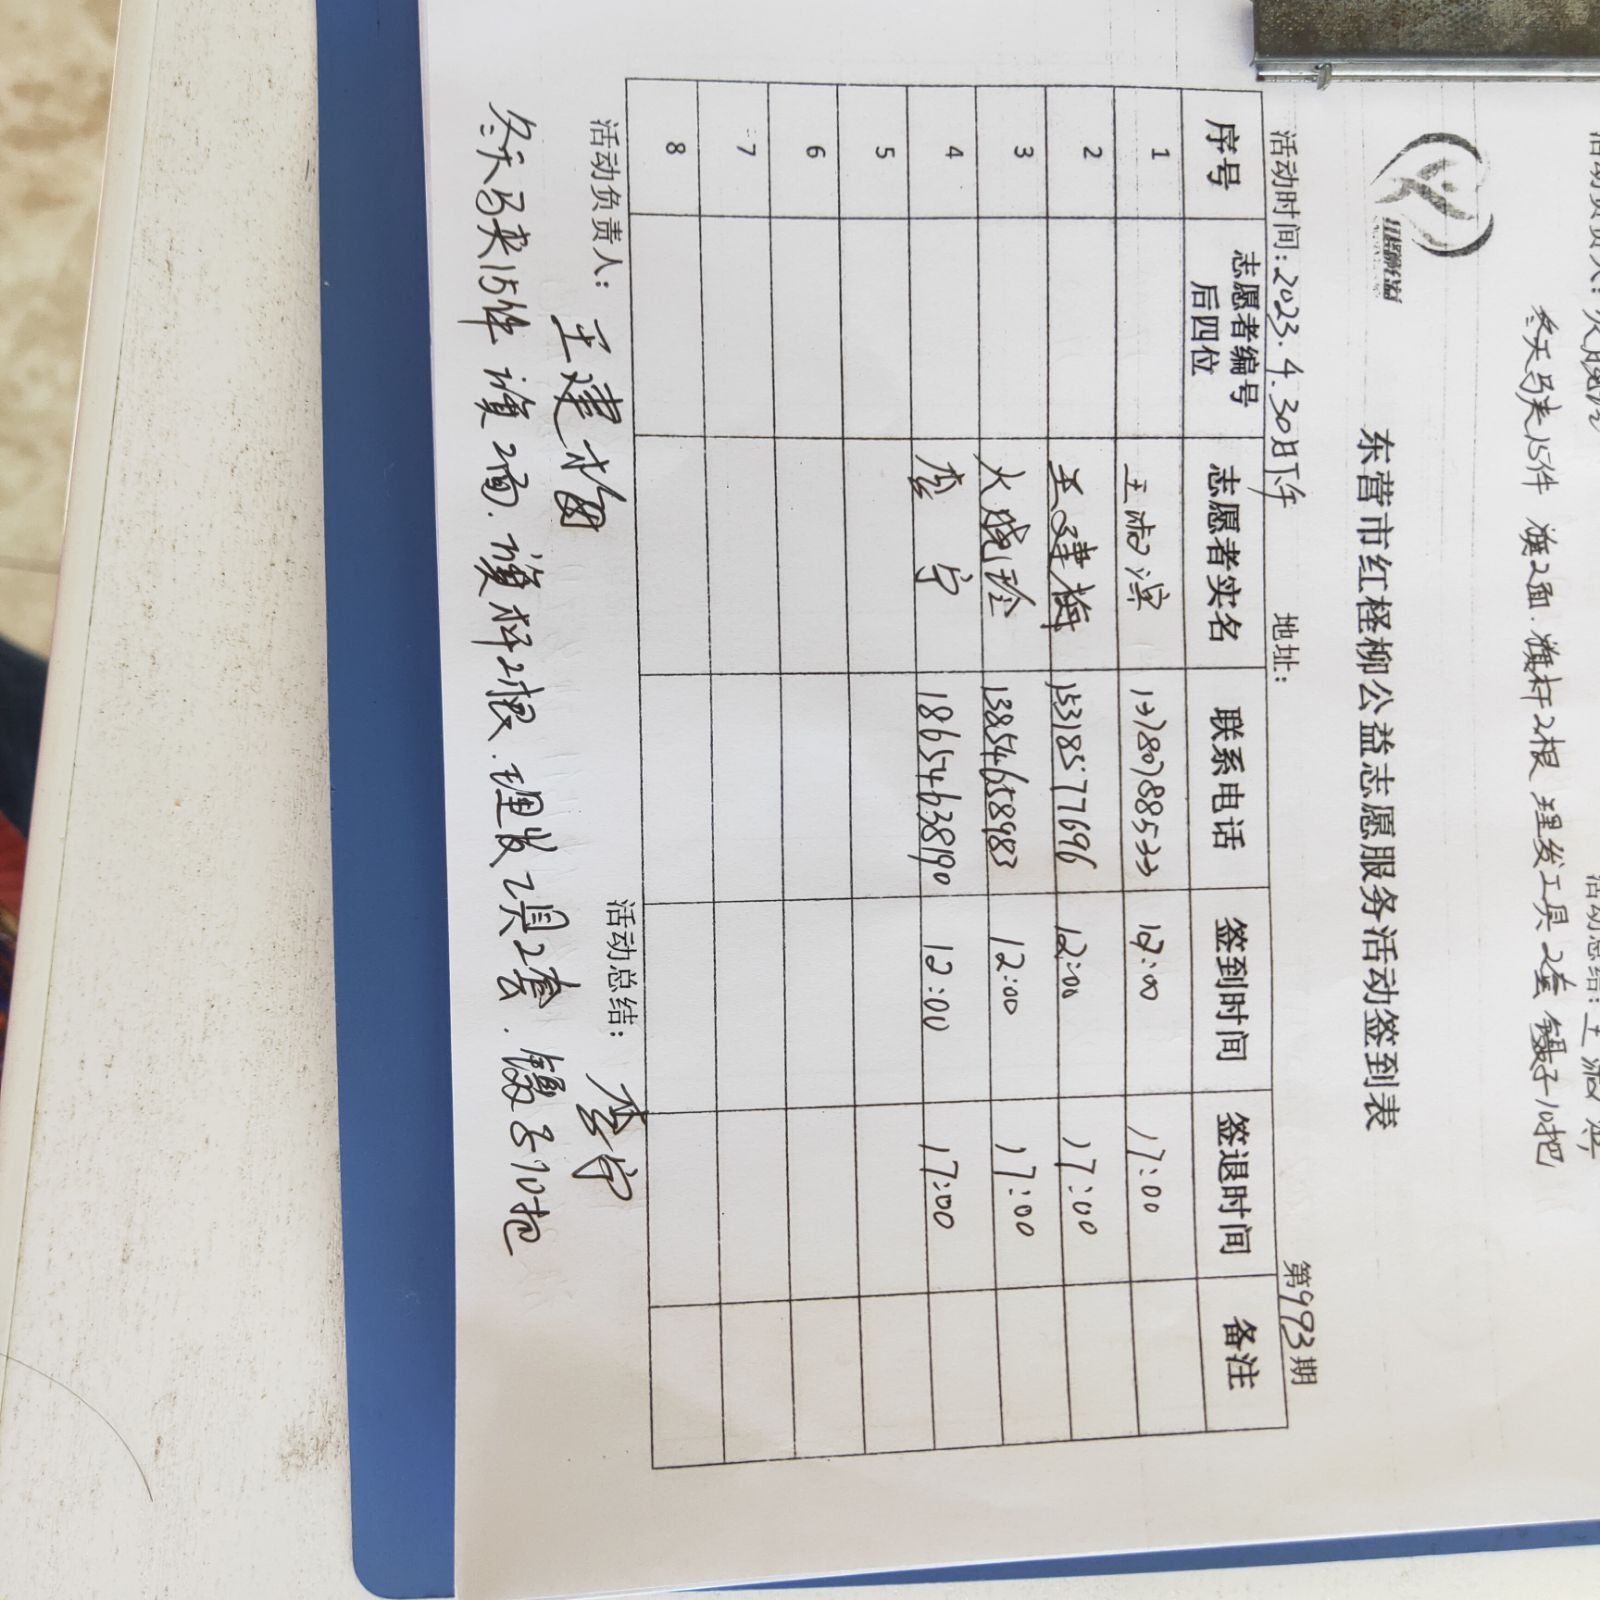 冬天马夹15件 旗2面.旗杆2根 理发工具2套 镊子10把
东营市红柽柳公益志愿服务活动签到表
第993期
活动时间:2023.4.30日下午 地址:
序号 志愿者编号后四位 志愿者实名 联系电话 签到时间 签退时间 备注
1 12:00 17:00
2 王建梅 15318577696 12:00 17:00
3 13854658983 12:00 17:00
4 李宁 18654638190 12:00 17:00
5
6
7
8
活动负责人: 王建梅 活动总结: 李宁
冬天马夹15件 旗2面.旗杆2根.理发工具2套.镊子10把